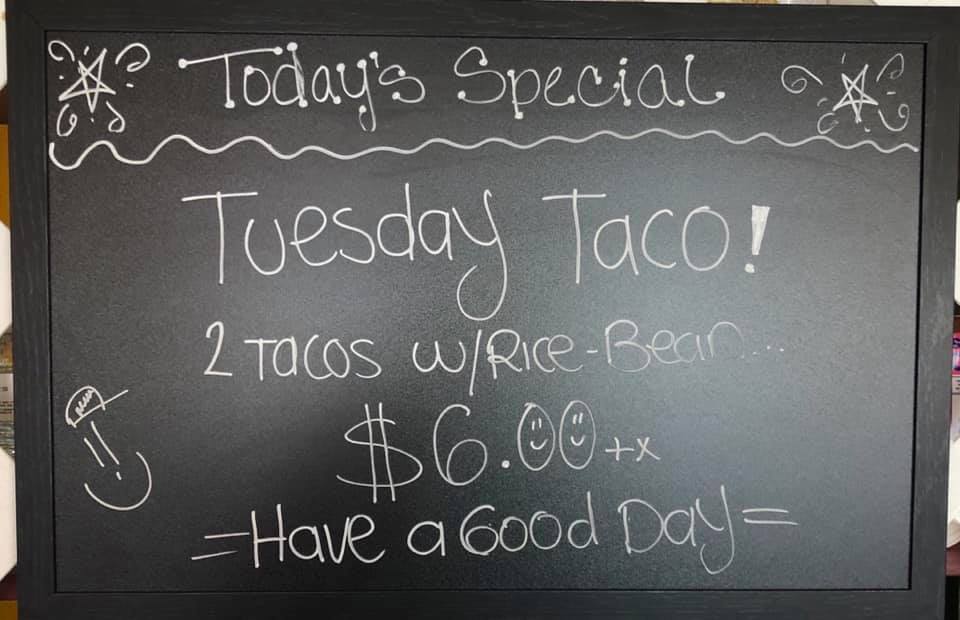 Today's Special
Tuesday Taco!
2 Tacos w/Rice-Bean...
$6.00 +x
=Have a Good Day=